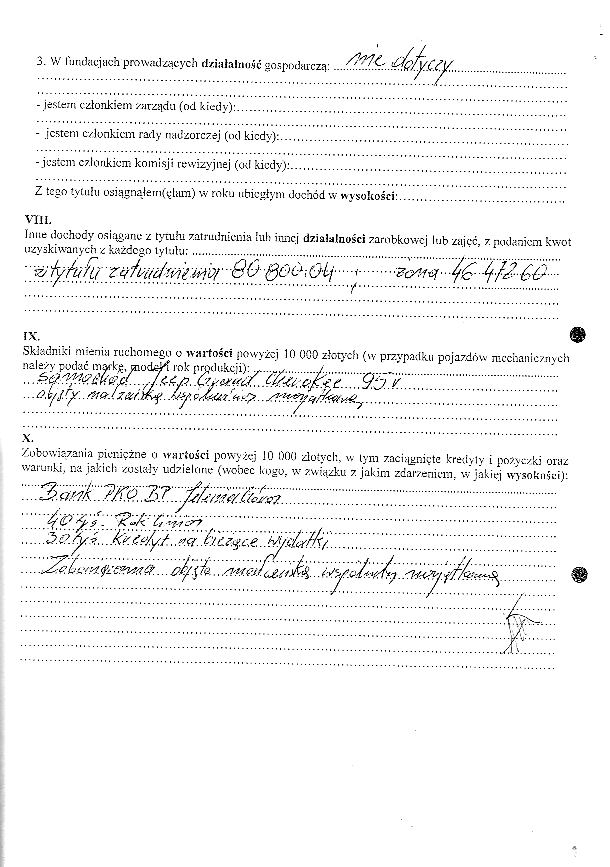 3. W fundacjach prowadzących działalność gospodarczą: nie dotyczy
- jestem członkiem zarządu (od kiedy):
- jestem członkiem rady nadzorczej (od kiedy):
- jestem członkiem komisji rewizyjnej (od kiedy):
Z tego tytułu osiągnąłem(ęłam) w roku ubiegłym dochód w wysokości:
VIII.
Inne dochody osiągane z tytułu zatrudnienia lub innej działalności zarobkowej lub zajęć, z podaniem kwot
uzyskiwanych z każdego tytułu:
z tytułu zatrudnienia 80 800.04 , żona 46 472.60
IX.
Składniki mienia ruchomego o wartości powyżej 10 000 złotych (w przypadku pojazdów mechanicznych
należy podać markę, model i rok produkcji):
samochód Jeep Grand Cherokee 95 r
objęty małżeńską wspólnotą majątkową
X.
Zobowiązania pieniężne o wartości powyżej 10 000 złotych, w tym zaciągnięte kredyty i pożyczki oraz
warunki, na jakich zostały udzielone (wobec kogo, w związku z jakim zdarzeniem, w jakiej wysokości):
Bank PKO BP
40 tyś.
30 tyś kredyt na bieżące wydatki
Zobowiązania objęte małżeńską wspólnotą majątkową